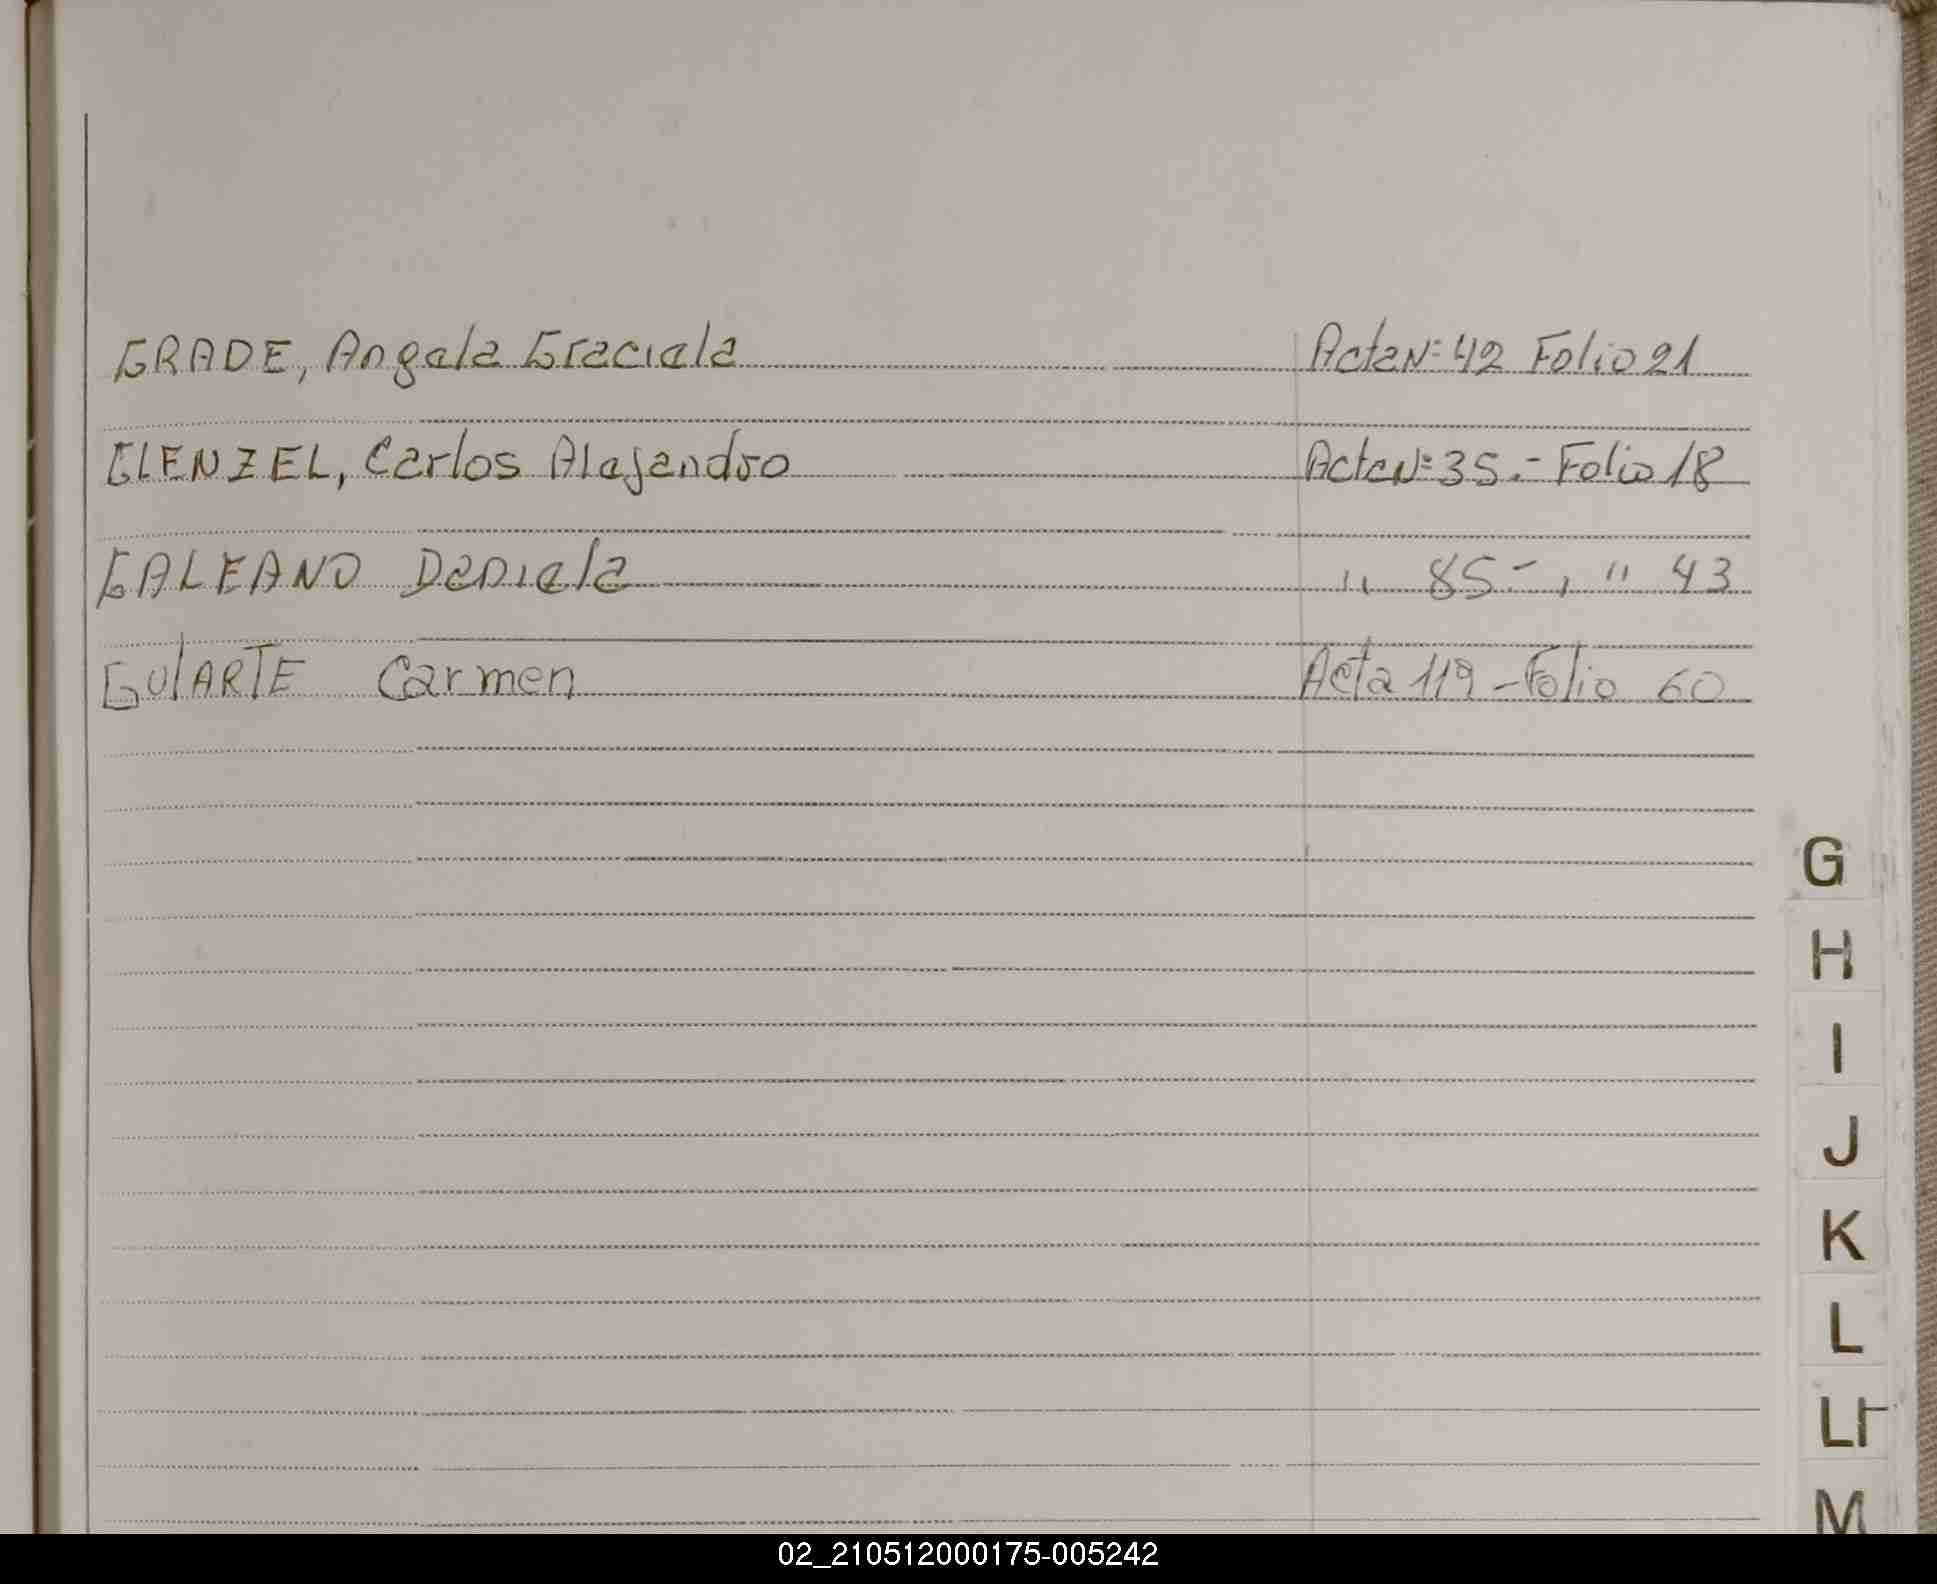 GRADE, Angela Graciela Acta Nº 42 Folio 21
GLENZEL, Carlos Alejandro Acta Nº 35.- Folio 18
GALEANO Daniela " 85-, " 43
GULARTE Carmen Acta 119 - Folio 60
G
H
I
J
K
L
Ll
M
02_210512000175-005242